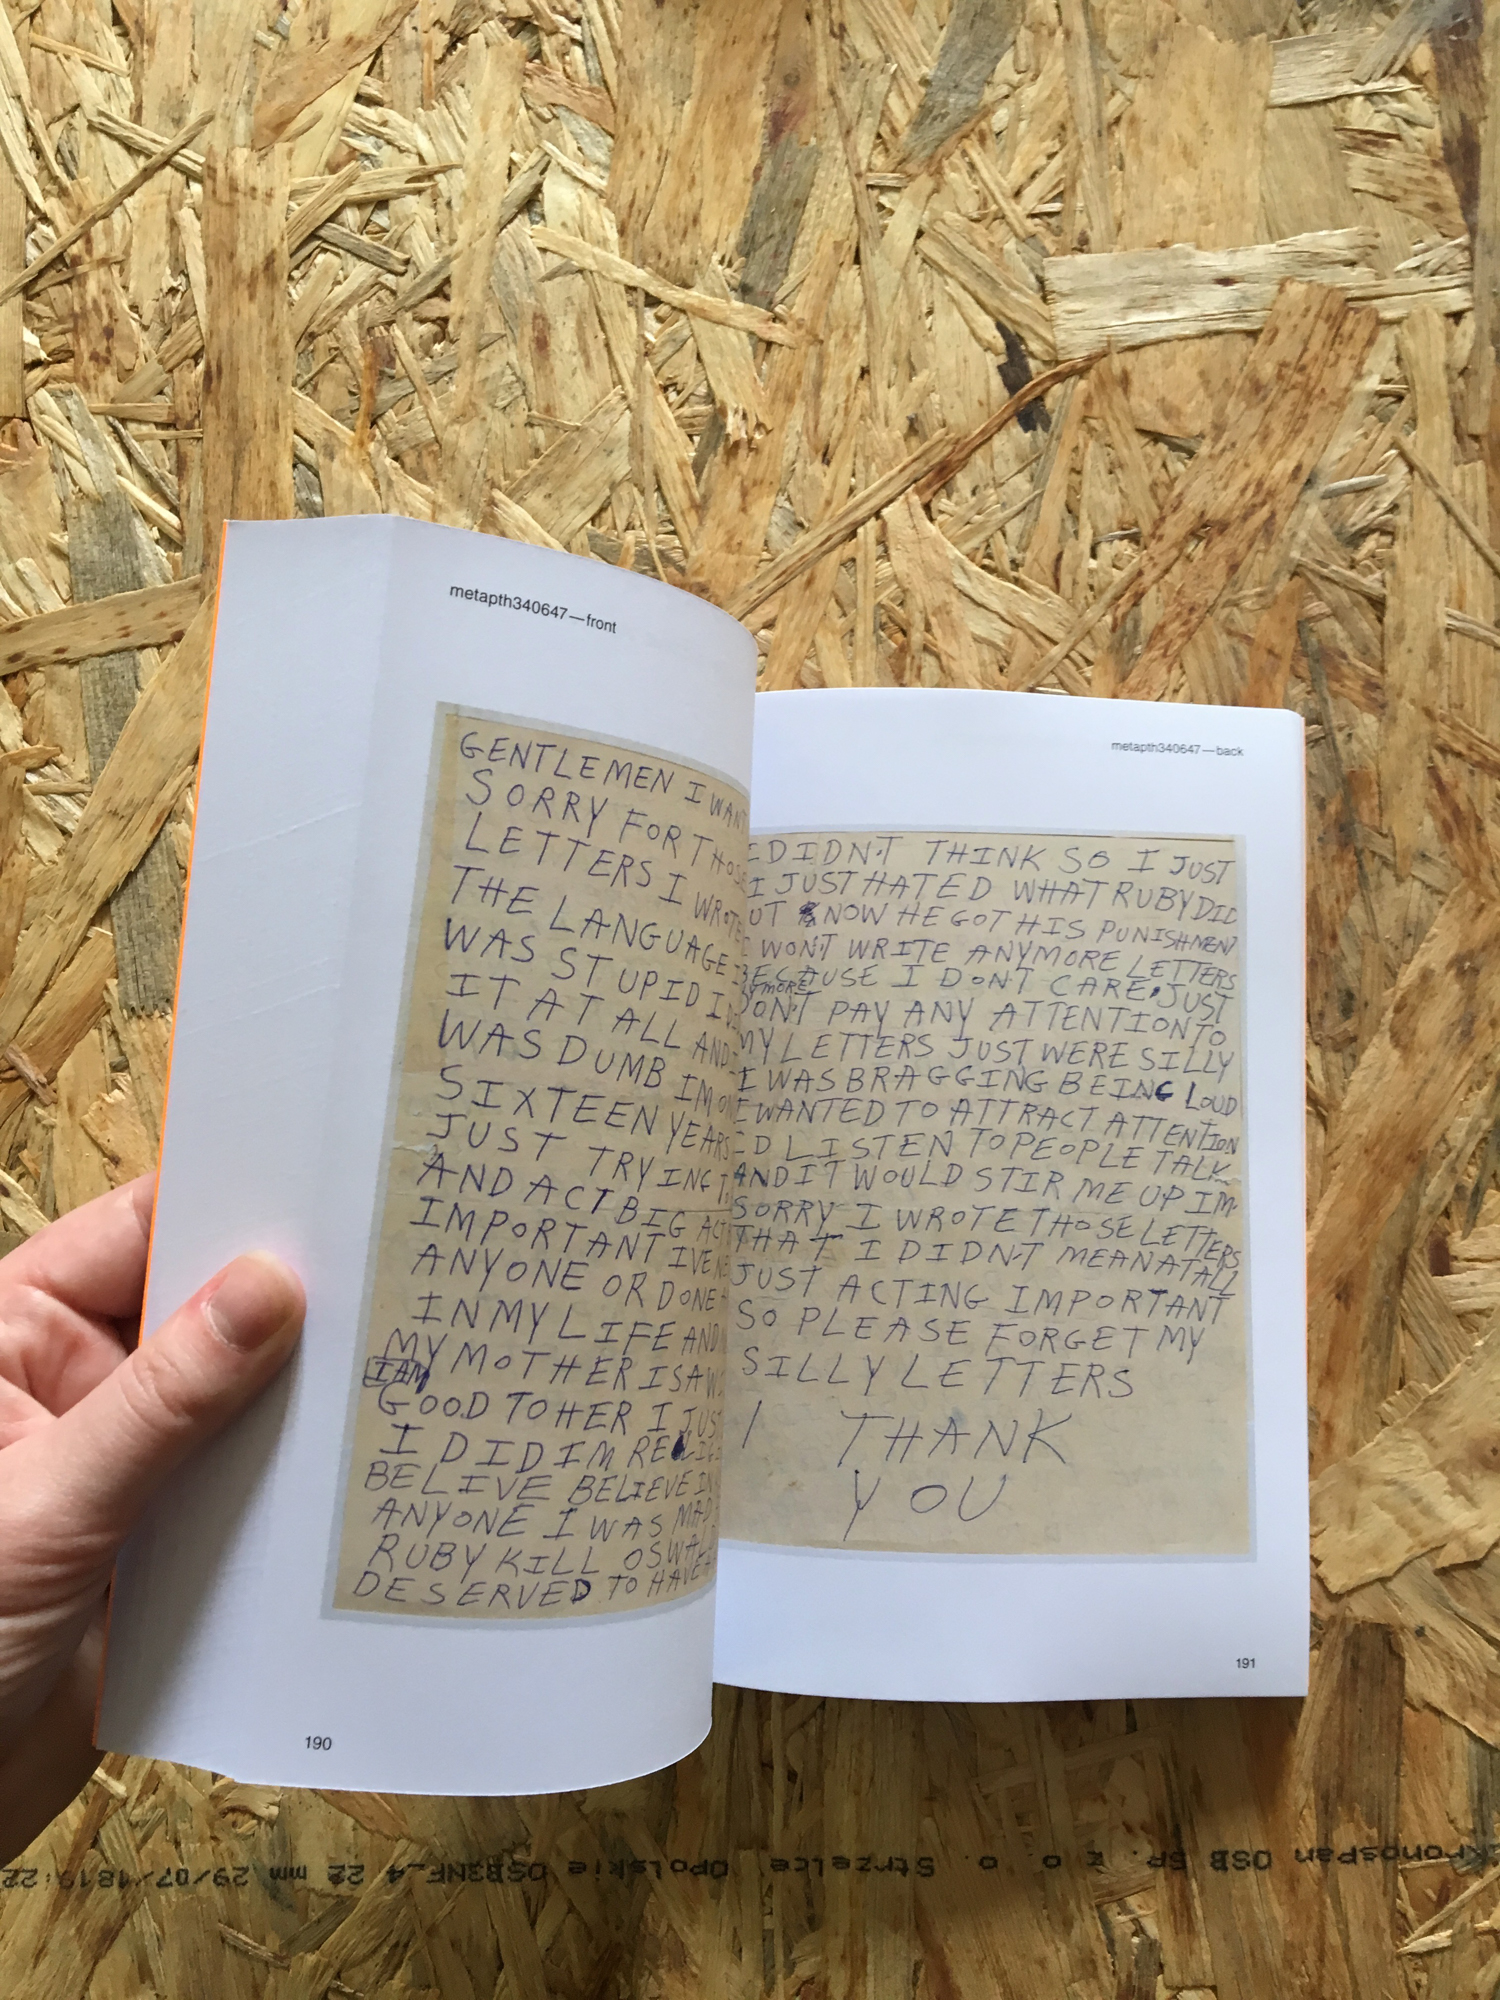 metapth340647—front
GENTLEMEN I WANT
SORRY FOR THOSE
LETTERS I WROTE
THE LANGUAGE
WAS STUPID I
IT AT ALL AND
WAS DUMB IM
SIXTEEN YEARS
JUST TRYING
AND ACT BIG
IMPORTANT IVE
ANYONE OR DONE
IN MY LIFE AND
MY MOTHER IS A
I AM
GOOD TO HER I JUST
I DID IM
BELIVE BELIEVE IN
ANYONE I WAS MAD
RUBY KILL OSWALD
DESERVED TO HAVE
190
metapth340647—back
I DIDN'T THINK SO I JUST
I JUST HATED WHAT RUBY DID
BUT NOW HE GOT HIS PUNISHMENT
I WON'T WRITE ANYMORE LETTERS
BECAUSE I DON'T CARE, JUST
ANYMORE
DON'T PAY ANY ATTENTION TO
MY LETTERS JUST WERE SILLY
I WAS BRAGGING BEING LOUD
I WANTED TO ATTRACT ATTENTION
ID LISTEN TO PEOPLE TALK
AND IT WOULD STIR ME UP IM
SORRY I WROTE THOSE LETTERS
THAT I DIDN'T MEAN AT ALL
JUST ACTING IMPORTANT
SO PLEASE FORGET MY
SILLY LETTERS
THANK
YOU
191
Kronospan OSB SP. z o. o. Strzelce Opolskie OSB3NF_4 22 mm 29/07/18 19:22